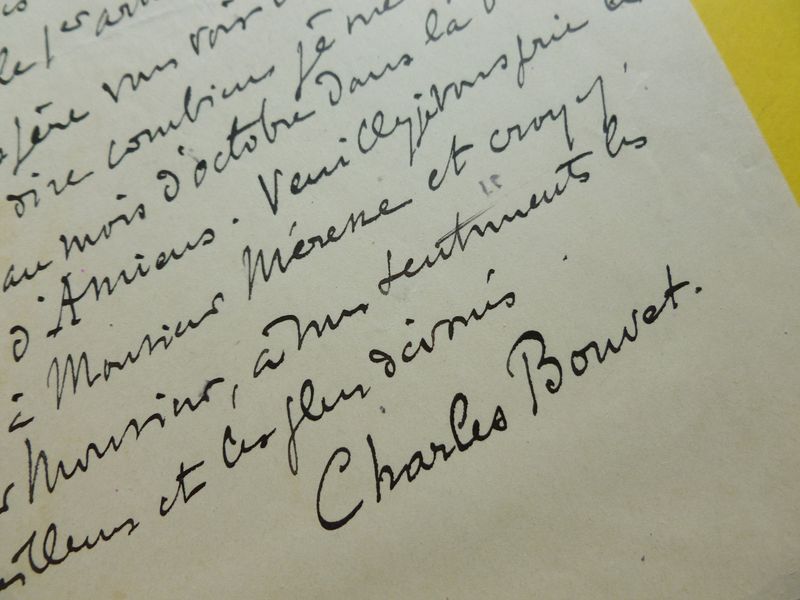 le 1er
vous voir
dire combien je me
au mois d'octobre dans la
d'Amiens. Veuillez je vous prie
à Monsieur Méresse et croyez,
Monsieur, à mes sentiments les
meilleurs et les plus dévoués.
Charles Bouvet.